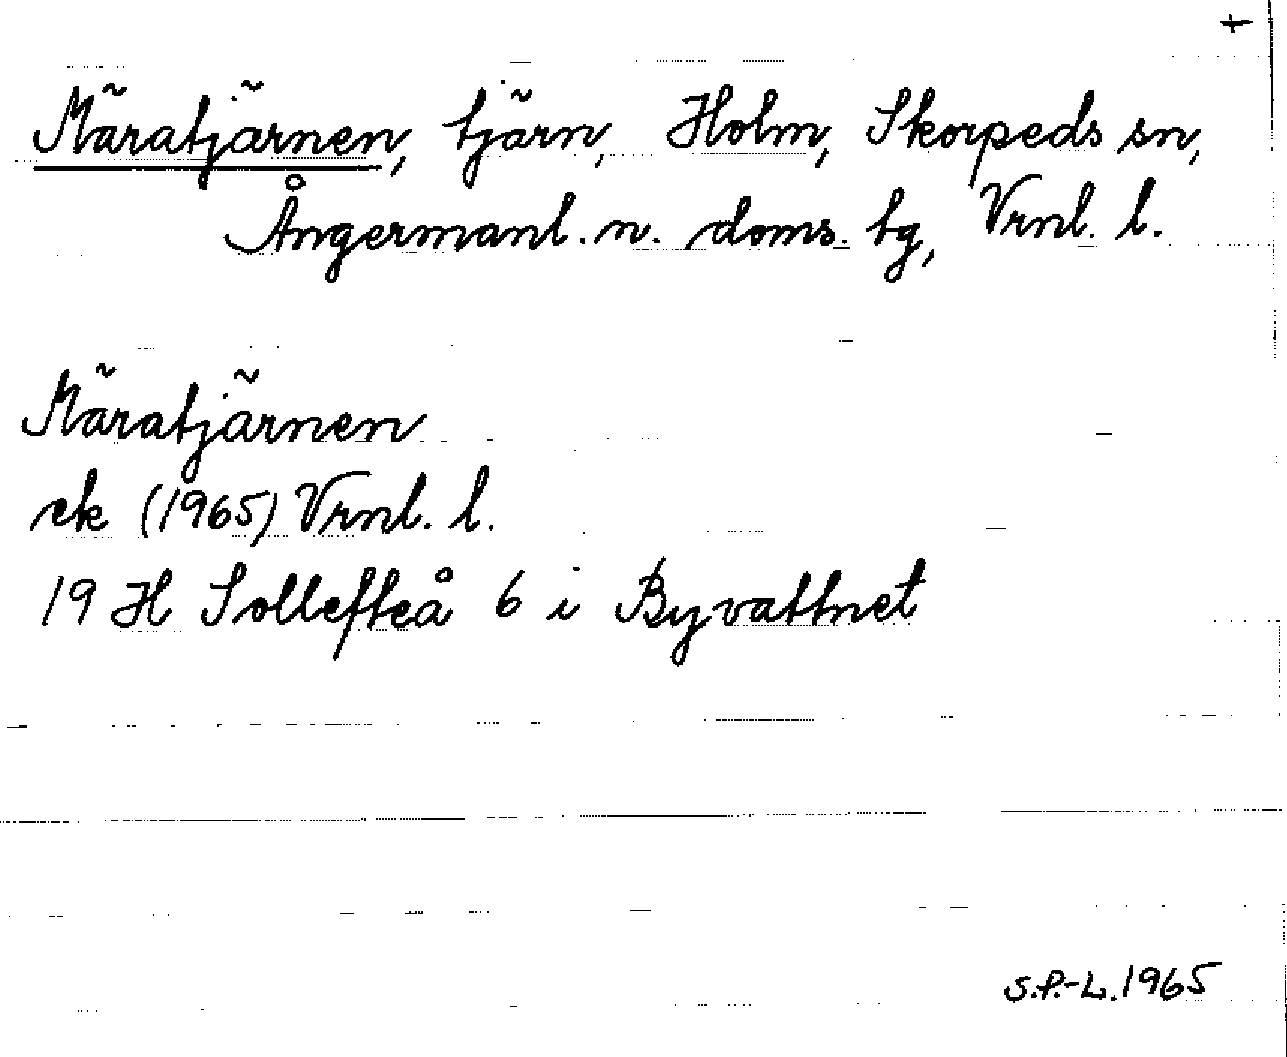 +
Märatjärnen, tjärn, Holm, Skorpeds sn,
Ångermanl. n. doms. tg, Vrnl. l.
Märatjärnen
ek (1965) Vrnl. l.
19 H Sollefteå 6 i Byvattnet
S.P.-L. 1965